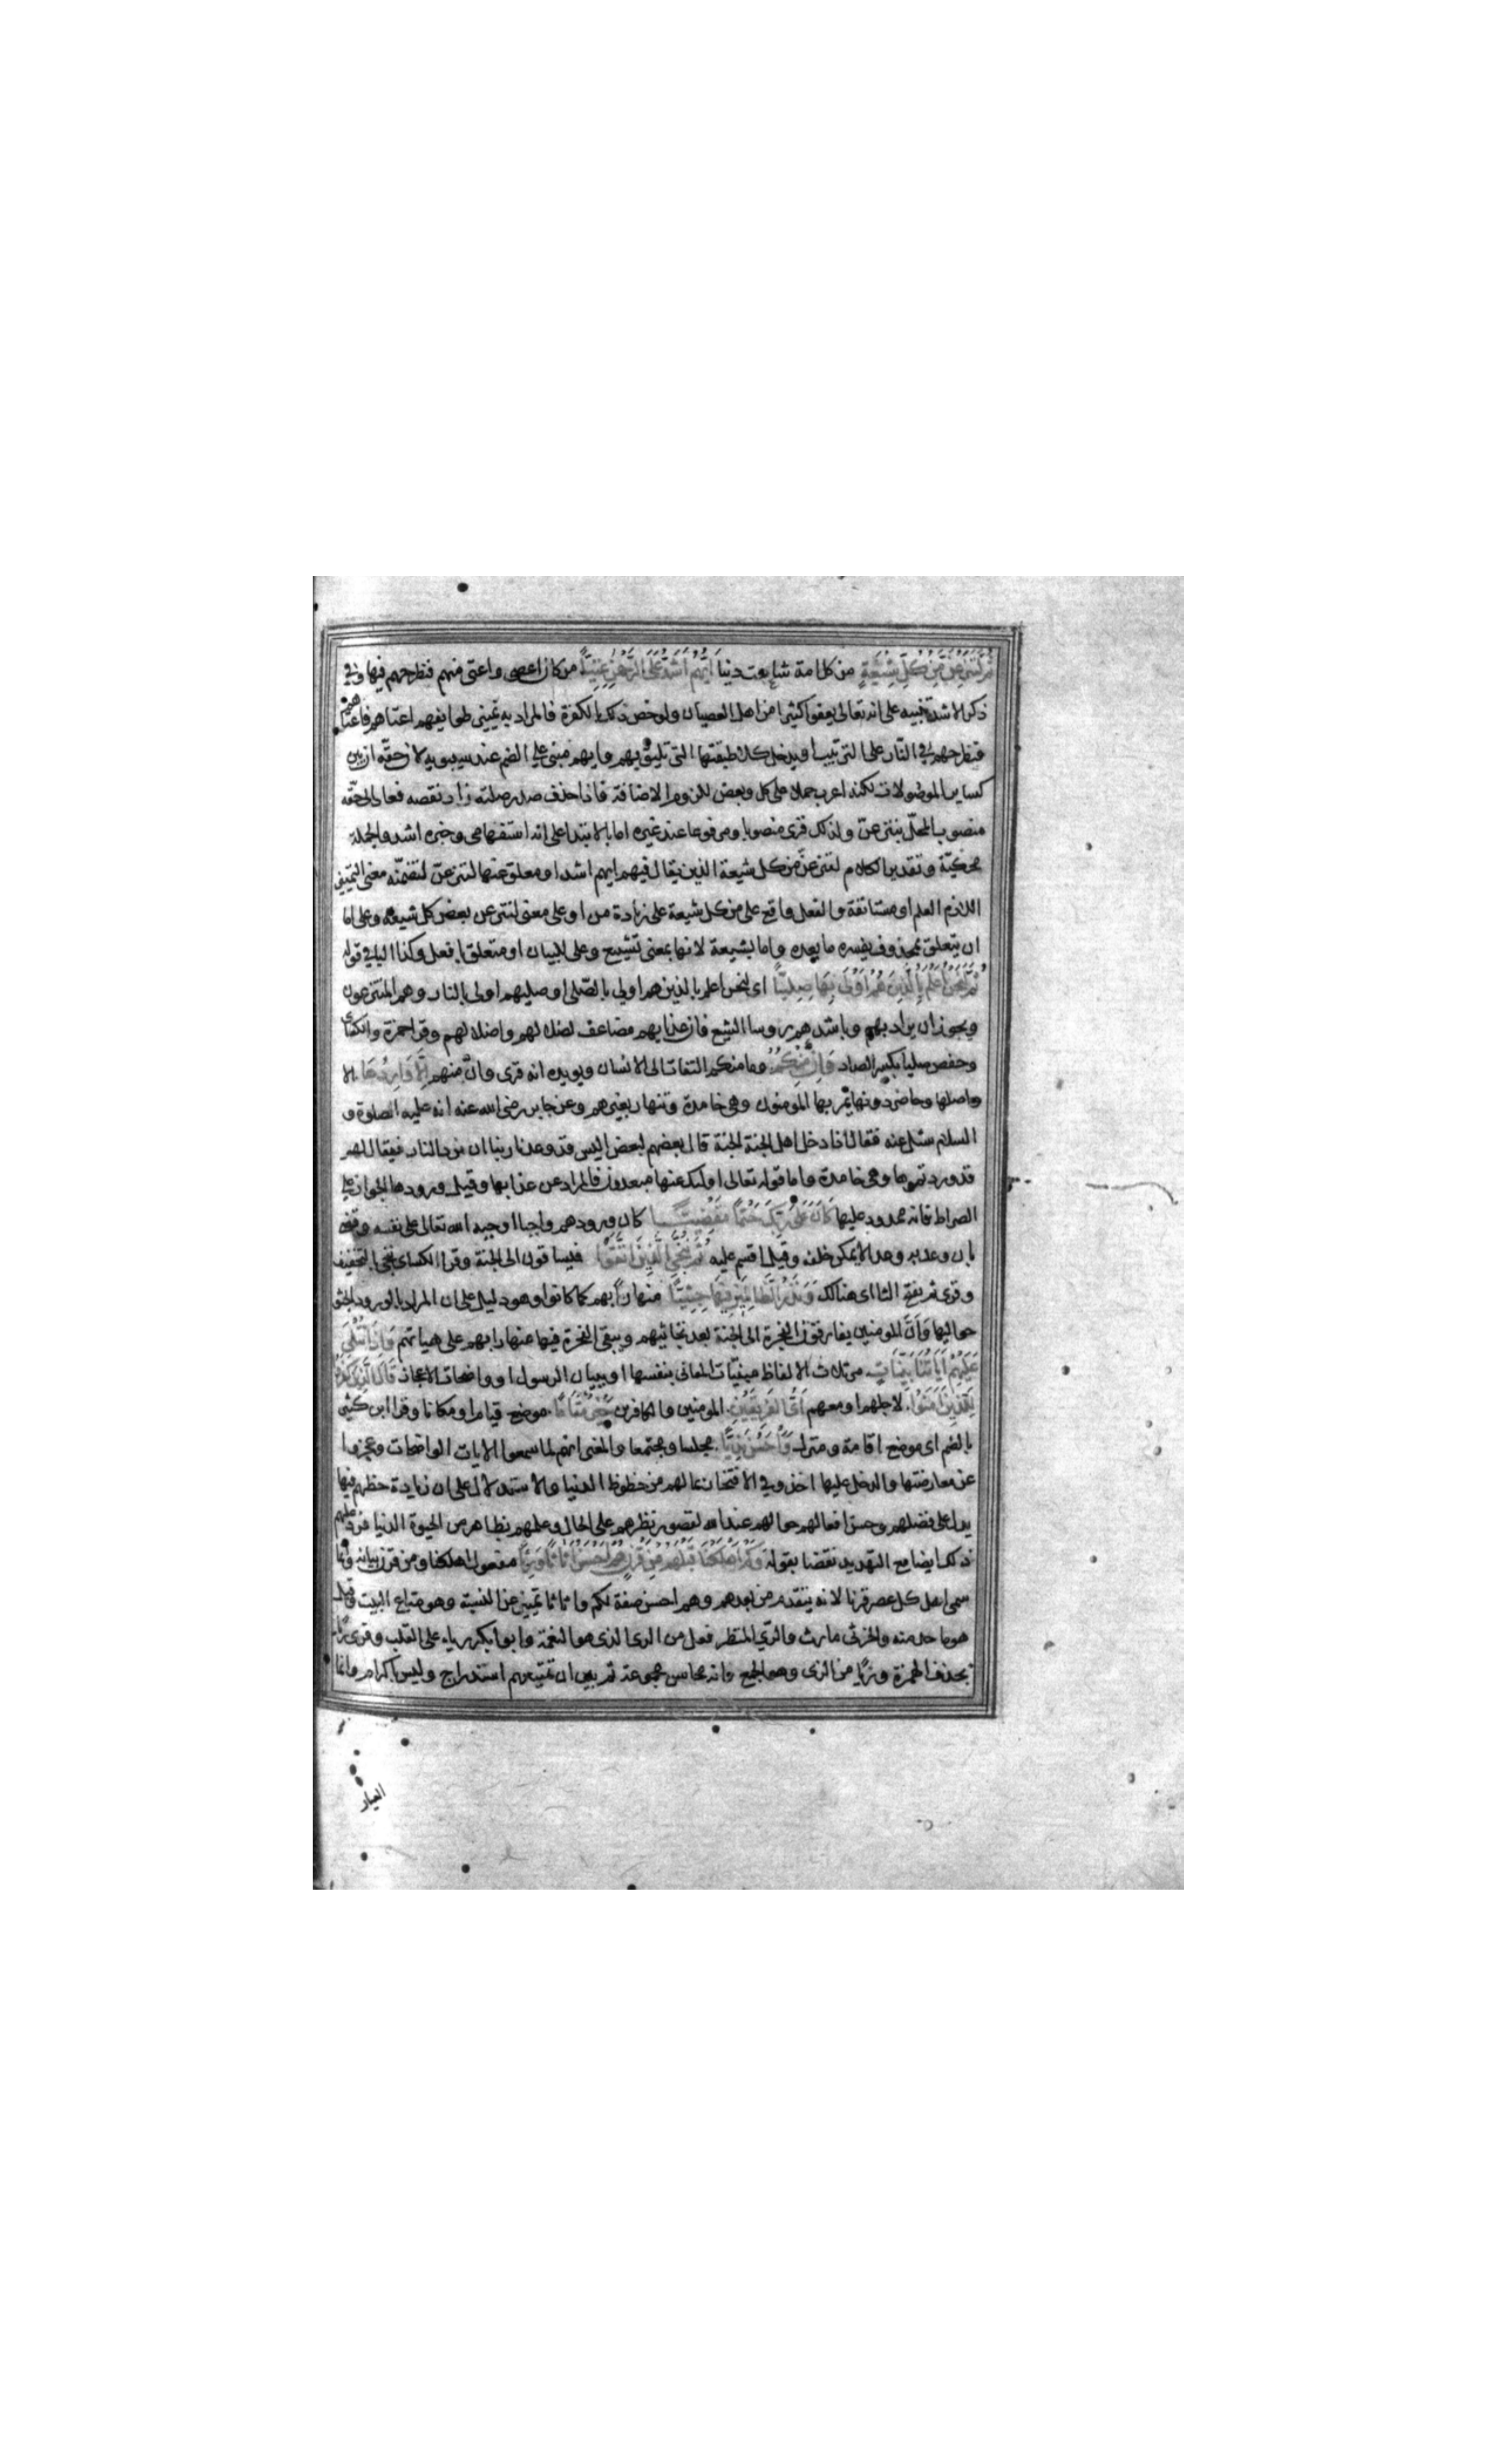 ثُمَّ لَنَنْزِعَنَّ مِنْ كُلِّ شِيعَةٍ من كل امة شايعت دينا اَيُّهُمْ اَشَدُّ عَلَى الرَّحْمٰنِ عِتِيًّا من كان اعصى واعتى منهم فنطرحهم فيها وفي
ذكر الاشد تنبيه على انه تعالى يعفو كثيرا من اهل العصيان ولو خص ذلك بالكفرة فالمراد به تميز طوايفهم اعتاهم فاعتاهم
فنطرحهم في النّار على الترتيب او يدخل كلا طبقتها التي تليق بهم وايهم مبنى على الضم عند سيبويه لان حقّه ان يبنى
كساير الموصولات لكنه اعرب حملا على كل وبعض للزوم الاضافة فاذا حذف صدر صلته زاد نقصه فعاد الى حقّه
منصوب المحلّ بننزعنّ ولذلك قرئ منصوبا ومرفوعا عند غيره اما بالابتدا على انه استفهامى وخبره اشد والجملة
محكيّة وتقدير الكلام لننزعنّ من كل شيعة الذين يقال فيهم ايهم اشد او معلق عنها لننزعنّ لتضمنه معنى التمييز
اللازم العلم او مستانفة والفعل واقع على من كل شيعة على زيادة من او على معنى لننزعن بعض كل شيعة وعلى اما
ان يتعلق بمحذوف يفسره ما بعده واما بشيعة لانها بمعنى تشيع وعلى للبيان او متعلق بافعل وكذا البا في قوله
ثُمَّ لَنَحْنُ اَعْلَمُ بِالَّذِينَ هُمْ اَوْلَى بِهَا صِلِيًّا اى لنحن اعلم بالذين هم اولى بالصّلى او صليهم اولى بالنار وهم المنتزعون
ويجوز ان يراد بهم وباشدهم روسا الشيع فان عذابهم مضاعف لضلالهم واضلالهم وقرا حمزة والكسائى
وحفص صليا بكسر الصاد وَاِنْ مِنْكُمْ وما منكم التفات الى الانسان ويويده انه قرى وان منهم اِلَّا وَارِدُهَا الا
واصلها وحاضر دونها يمر بها المومنون وهى خامدة وتنهار بغيرهم وعن جابر رضى الله عنه انه عليه الصلوة و
السلام سئل عنه فقال اذا دخل اهل الجنة الجنة قال بعضهم لبعض اليس قد وعدنا ربنا ان نرد النار فيقال لهم
قد وردتموها وهى خامدة واما قوله تعالى اولئك عنها مبعدون فالمراد عن عذابها وقيل ورودها الجواز على
الصراط فانه ممدود عليها كَانَ عَلَى رَبِّكَ حَتْمًا مَقْضِيًّا كان ورودهم واجبا اوجبه الله تعالى على نفسه وقضى
بان وعد به وعدا لا يمكن خلفه وقيل اقسم عليه ثُمَّ نُنَجِّى الَّذِينَ اتَّقَوْا فيساقون الى الجنة وقرا الكساى ننجى بالتخفيف
وقرى ثم بفتح الثا اى هنالك وَنَذَرُ الظَّالِمِينَ فِيهَا جِثِيًّا منهارا بهم كما كانوا وهو دليل على ان المراد بالورود الجثو
حواليها وَاَنَّ المومنين يفارقون الفجرة الى الجنة بعد تجاثيهم ويبقى الفجرة فيها منهارا بهم على هياتهم وَاِذَا تُتْلَى
عَلَيْهِمْ اٰيَاتُنَا بَيِّنَاتٍ مرتلات الالفاظ مبينات المعانى بنفسها او ببيان الرسول او واضحات الاعجاز قَالَ الَّذِينَ كَفَرُوا
لِلَّذِينَ اٰمَنُوا لاجلهم او معهم اَىُّ الفَرِيقَيْنِ المومنين والكافرين خَيْرٌ مَقَامًا موضع قيام او مكانا وقرا ابن كثير
بالضم اى موضع اقامة ومنزل وَاَحْسَنُ نَدِيًّا مجلسا ومجتمعا والمعنى انهم لما سمعوا الايات الواضحات وعجزوا
عن معارضتها والدخل عليها اخذوا فى الافتخار بما لهم من حظوظ الدنيا والاستدلال على ان زيادة حظهم فيها
يدل على فضلهم وحسن حالهم عند الله لقصور نظرهم على الحال وعلمهم بظاهر من الحيوة الدنيا فرد عليهم
ذلك ايضا مع التهديد نقضا بقوله وَكَمْ اَهْلَكْنَا قَبْلَهُمْ مِنْ قَرْنٍ هُمْ اَحْسَنُ اَثَاثًا وَرِئْيًا مفعول اهلكنا ومن قرن بيانه وانما
سمى اهل كل عصر قرنا لانه يتقدم من بعدهم وهم احسن صفة لكم واثاثا تمييز عن النسبة وهو متاع البيت وقيل
هو ما جد منه والخرثى ما رث والرّئى المنظر فعل من الرؤية وابو بكر رياء على القلب وقرى ريّا
بحذف الهمزة وزيّا من الزى وهو الجمع فانه محاسن مجموعة ثم بين ان تمتيعهم استدراج وليس باكرام وانما
العيار